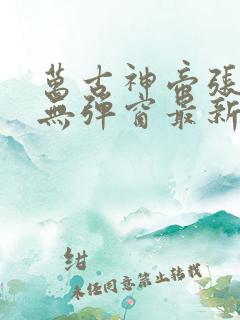 萬古神帝張
無彈窗最新
紺
未经同意禁止转载